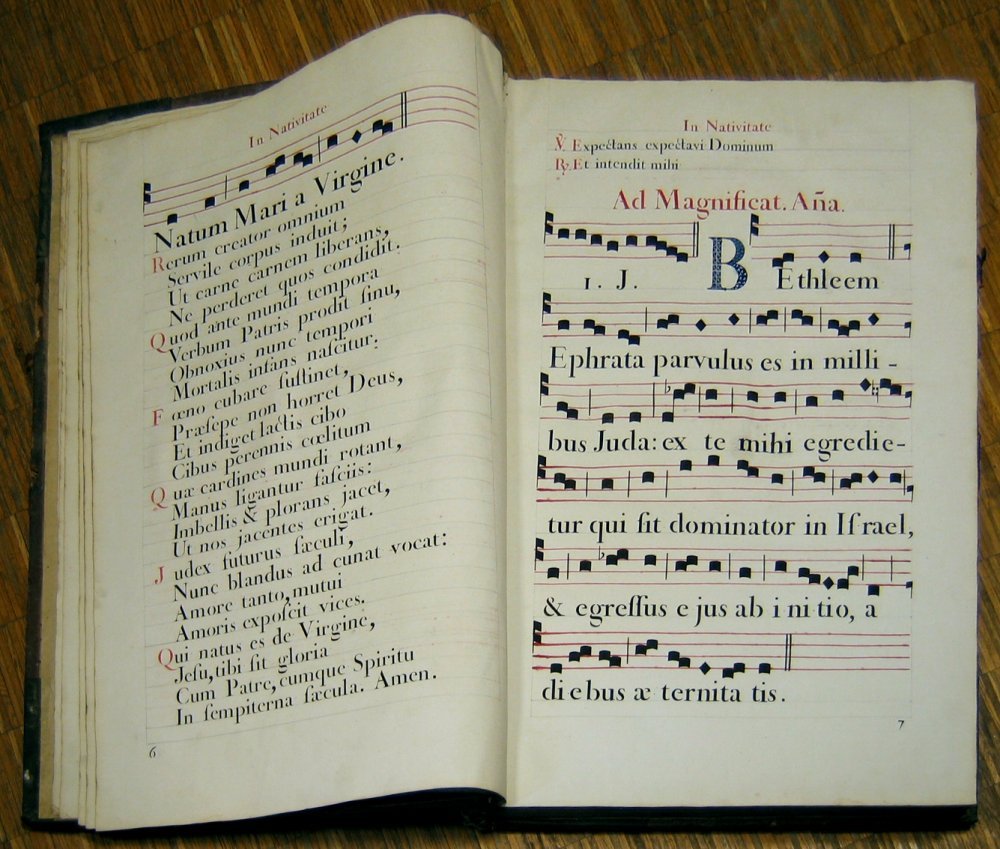 In Nativitate
Natum Mari a Virgine.
Rerum creator omnium
Servile corpus induit;
Ut carne carnem liberans,
Ne perderet quos condidit.
Quod ante mundi tempora
Verbum Patris prodit ſinu,
Obnoxius nunc tempori
Mortalis infans naſcitur.
Fœno cubare ſuſtinet,
Præſepe non horret Deus,
Et indiget lactis cibo
Cibus perennis cœlitum
Quæ cardines mundi rotant,
Manus ligantur faſciis:
Imbellis & plorans jacet,
Ut nos jacentes erigat.
Judex futurus ſæculi,
Nunc blandus ad cunat vocat:
Amore tanto, mutui
Amoris expoſcit vices.
Qui natus es de Virgine,
Jeſu, tibi ſit gloria
Cum Patre, cumque Spiritu
In ſempiterna ſæcula. Amen.
6
In Nativitate
℣. Expectans expectavi Dominum
℟. Et intendit mihi
Ad Magnificat. Aña.
1. J. BEthleem
Ephrata parvulus es in milli -
bus Juda: ex te mihi egredie-
tur qui ſit dominator in Iſrael,
& egreſſus e jus ab i ni tio, a
di ebus æ ternita tis.
7